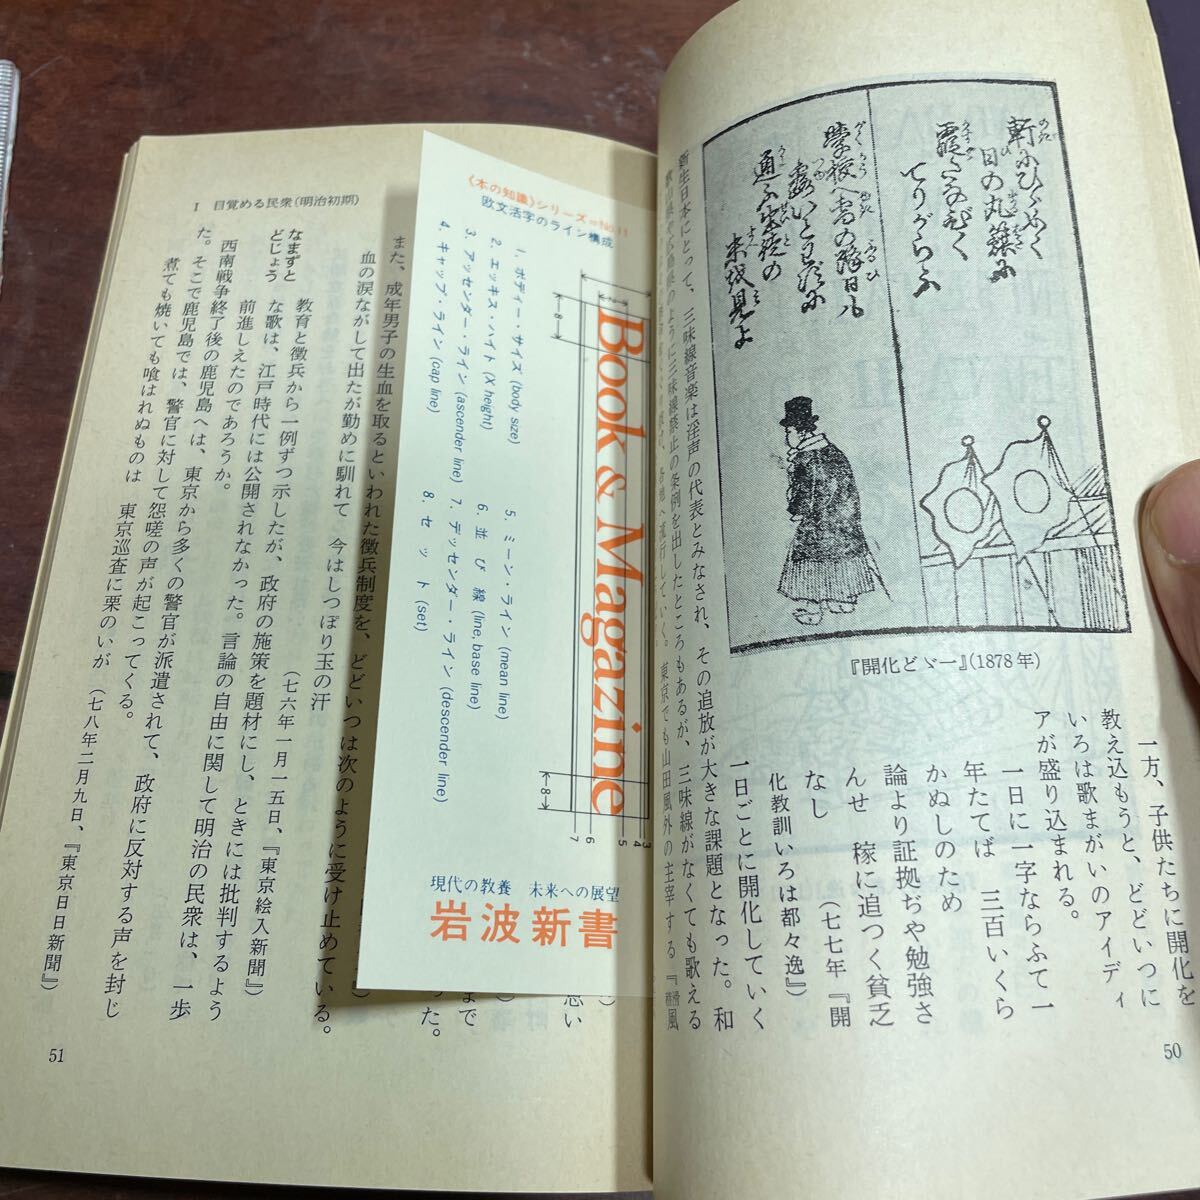 軒にひらめく
日の丸籏に
霞たなびく
てりがらす
学校へ雪の降日も
霜いとはずに
通ふ生徒の
来坂見よ
『開化どゞ一』(1878年)
一方、子供たちに開化を
教え込もうと、どどいつに
いろは歌まがいのアイディ
アが盛り込まれる。
一日に一字ならふて一
年たてば　三百いくら
かぬしのため
論より証拠ぢや勉強さ
んせ　稼に追つく貧乏
なし　(七七年『開
化教訓いろは都々逸』)
一日ごとに開化していく
新生日本にとって、三味線音楽は淫声の代表とみなされ、その追放が大きな課題となった。和
歌山県や広島県のように三味線禁止の条例を出したところもあるが、三味線がなくても歌える
各地へ流行していく。東京でも山田風外の主宰する『
50
I　目覚める民衆(明治初期)
また、成年男子の生血を取るといわれた徴兵制度を、どどいつは次のように受け止めている。
血の涙ながして出たが勤めに馴れて　今はしつぽり玉の汗
(七六年一月一五日、『東京絵入新聞』)
なまずと
どじょう
教育と徴兵から一例ずつ示したが、政府の施策を題材にし、ときには批判するよう
な歌は、江戸時代には公開されなかった。言論の自由に関して明治の民衆は、一歩
前進しえたのであろうか。
西南戦争終了後の鹿児島へは、東京から多くの警官が派遣されて、政府に反対する声を封じ
た。そこで鹿児島では、警官に対して怨嗟の声が起こってくる。
煮ても焼いても喰はれぬものは　東京巡査に栗のいが(七八年二月九日、『東京日日新聞』)
51
《本の知識》シリーズ=No.11
欧文活字のライン構成
Book & Magazine
1. ボディー・サイズ (body size)
2. エッキス・ハイト (X height)
3. アッセンダー・ライン (ascender line)
4. キャップ・ライン (cap line)
5. ミーン・ライン (mean line)
6. 並び線 (line, base line)
7. デッセンダー・ライン (descender line)
8. セット (set)
現代の教養　未来への展望
岩波新書